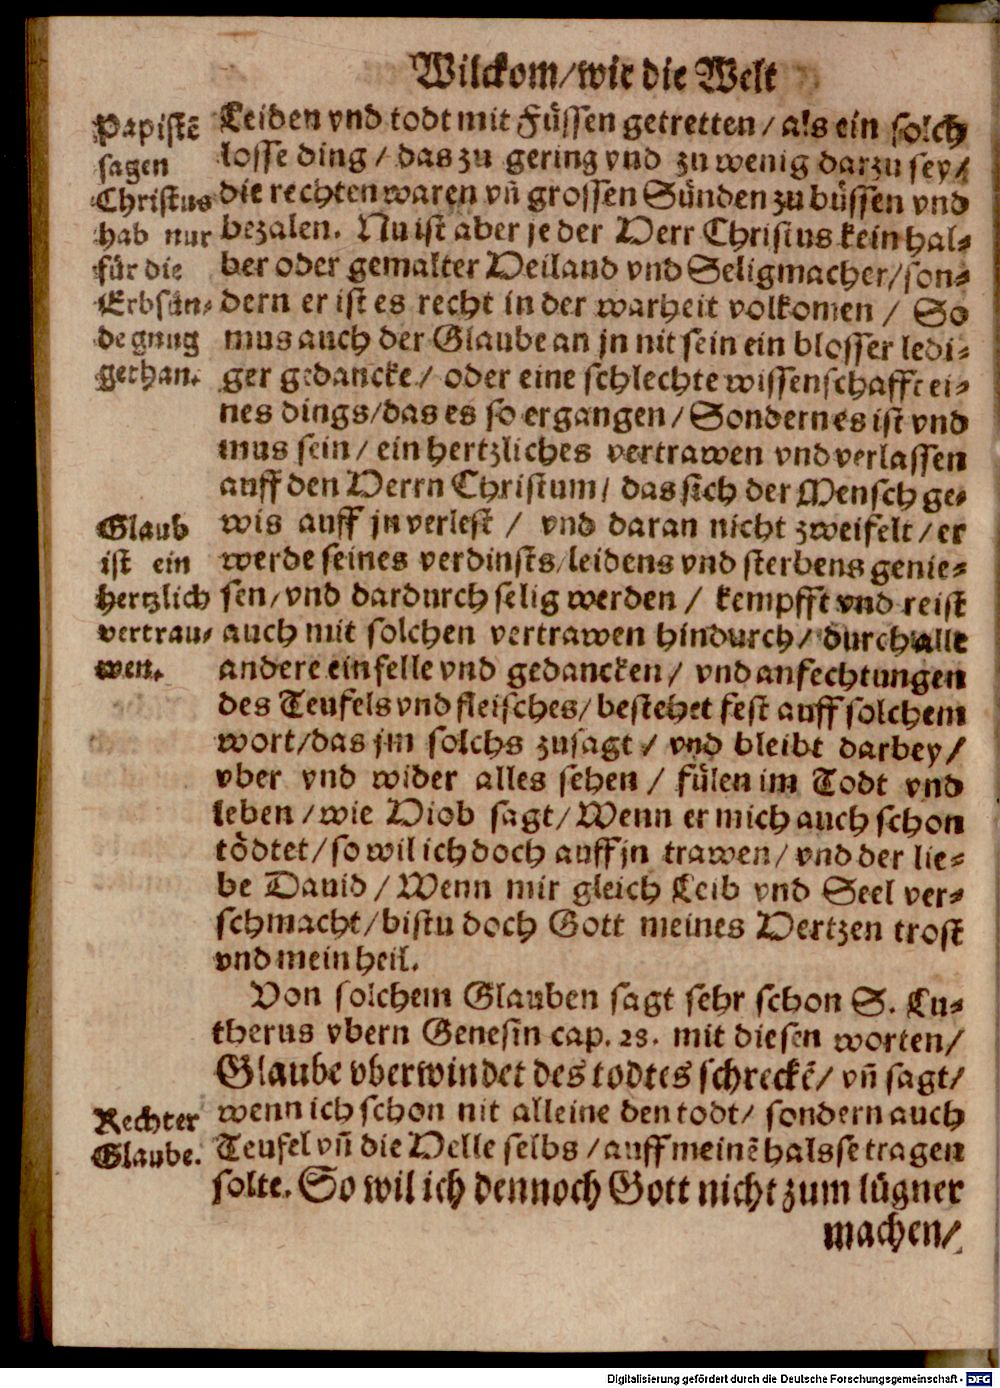 Wilckom/wie die Welt
Papistē
sagen
Christus
hab nur
für die
Erbsün-
de gnug
gethan.
Leiden vnd todt mit Füssen getretten / als ein solch
losse ding / das zu gering vnd zu wenig darzu sey/
die rechten waren vñ grossen Sünden zu büssen vnd
bezalen. Nu ist aber je der Herr Christus kein hal-
ber oder gemalter Heiland vnd Seligmacher/son-
dern er ist es recht in der warheit volkomen / So
mus auch der Glaube an jn nit sein ein blosser ledi-
ger gedancke / oder eine schlechte wissenschafft ei-
nes dings/das es so ergangen / Sondern es ist vnd
mus sein / ein hertzliches vertrawen vnd verlassen
auff den Herrn Christum / das sich der Mensch ge-
Glaub
ist ein
hertzlich
vertrau-
wen.
wis auff jn verlest / vnd daran nicht zweifelt / er
werde seines verdinsts/leidens vnd sterbens genie-
sen/vnd dardurch selig werden / kempfft vnd reist
auch mit solchen vertrawen hindurch / durch alle
andere einfelle vnd gedancken / vnd anfechtungen
des Teufels vnd fleisches/ bestehet fest auff solchem
wort/das jm solchs zusagt / vnd bleibt darbey/
vber vnd wider alles sehen / fülen im Todt vnd
leben / wie Hiob sagt/ Wenn er mich auch schon
tödtet/ so wil ich doch auff jn trawen/ vnd der lie-
be Dauid / Wenn mir gleich Leib vnd Seel ver-
schmacht/bistu doch Gott meines Hertzen trost
vnd mein heil.
Von solchem Glauben sagt sehr schon S. Lu-
therus vbern Genesin cap. 28. mit diesen worten/
Glaube vberwindet des todtes schreckē/ vñ sagt/
Rechter
Glaube.
wenn ich schon nit alleine den todt/ sondern auch
Teufel vñ die Helle selbs / auff meinē halsse tragen
solte. So wil ich dennoch Gott nicht zum lügner
machen/
Digitalisierung gefördert durch die Deutsche Forschungsgemeinschaft - DFG